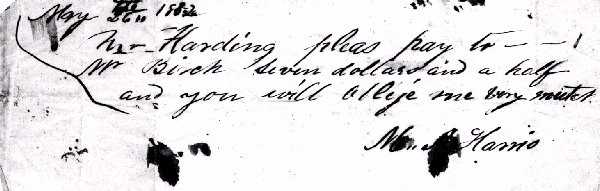 May 26 1882
Mr Harding pleas pay to
Mr Birch seven dollars and a half
and you will Oblije me very mutch
Harris